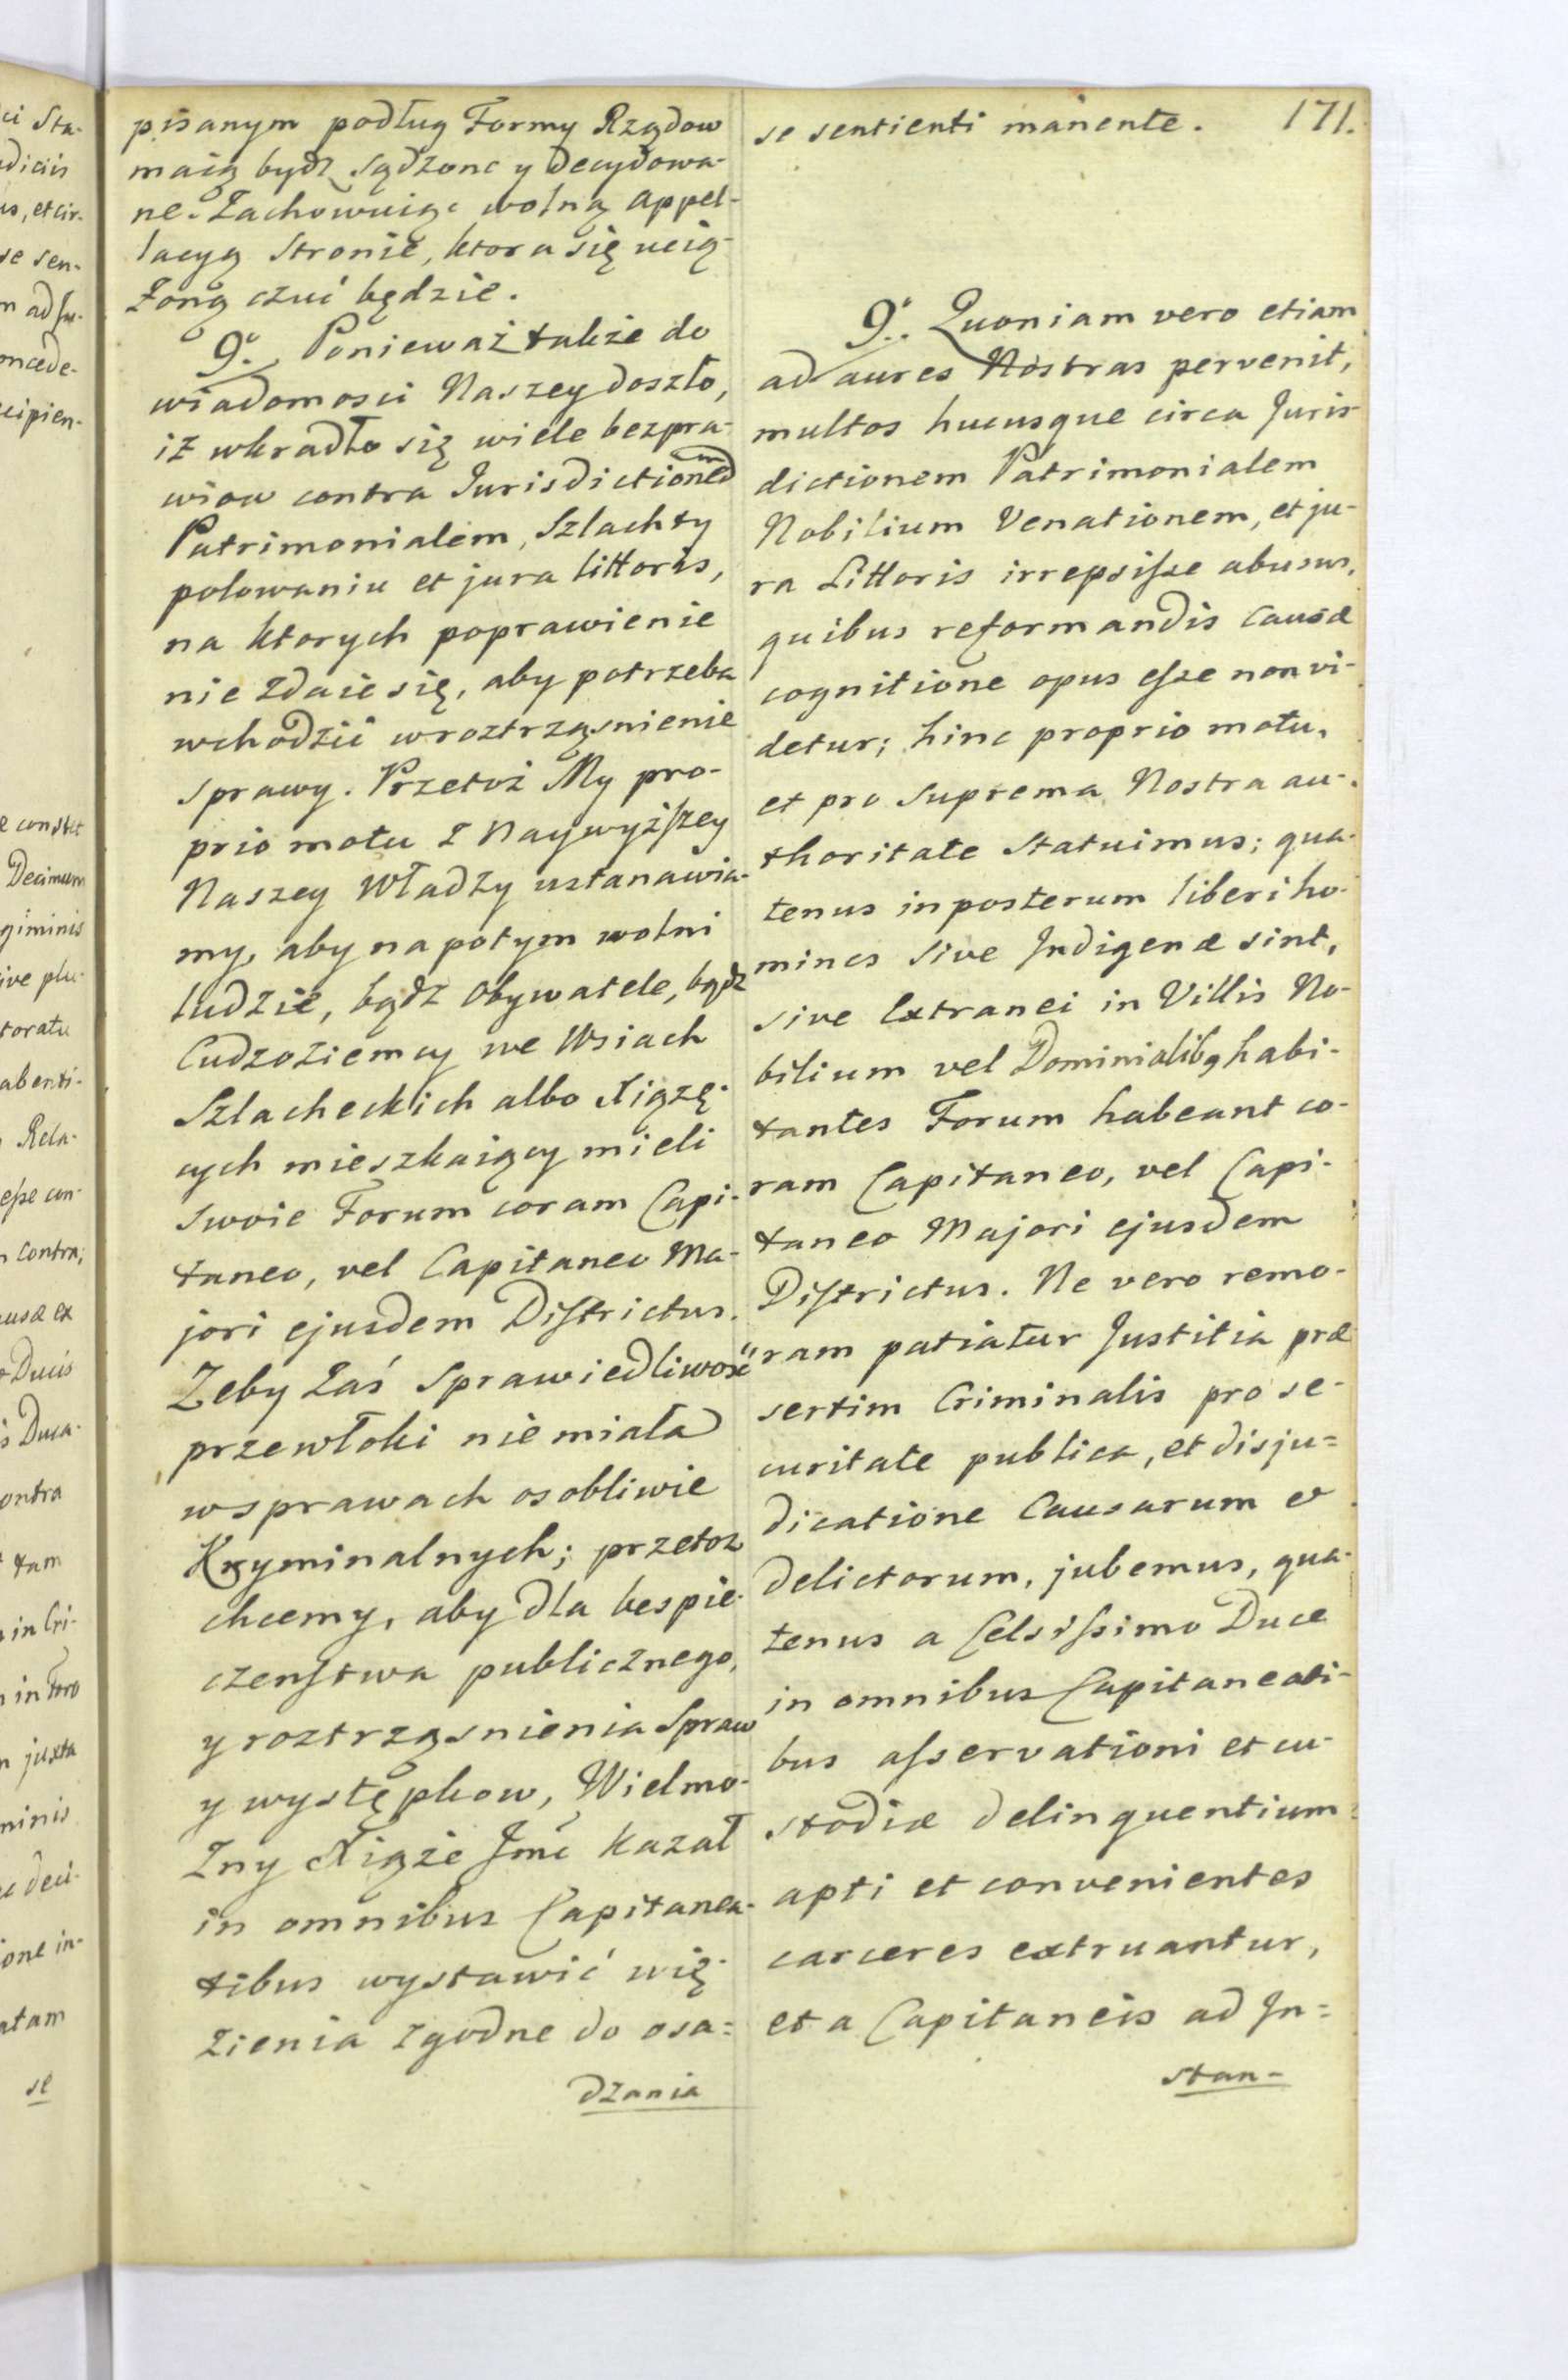 pisanym podług Formy Rządow
maią bydź sądzone y decydowa-
ne. Zachowuiąc wolną appel-
lacyą Stronie, ktora się ucią-
żoną czuć będzie.
9º. Ponieważ także do
wiadomosci Naszey doszło,
iż wkradło się wiele bezpra-
wiow contra Jurisdictionem
Patrimonialem, Szlachty
polowaniu et jura littoris,
na ktorych poprawienie
nie zdaie się, aby potrzeba
wchodzić w roztrząsnienie
sprawy. Przetoż My pro-
prio motu z Naywyiższey
Naszey Władzy ustanawia-
my, aby napotym wolni
ludzie, bądz Obywatele, bądz
Cudzoziemcy we Wsiach
Szlacheckich albo Xiążę-
cych mieszkaiący mieli
swoie Forum coram Capi-
taneo, vel Capitaneo Ma-
jori ejusdem Districtus.
Zeby zaś Sprawiedliwość
przewłoki nie miała
w sprawach osobliwie
Kryminalnych; przetoz
chcemy, aby dla bespie-
czenstwa publicznego,
y roztrząsnienia Spraw
y występkow, Wielmo-
żny Xiąże Jmć kazał
in omnibus Capitanea-
tibus wystawić wię-
zienia zgodne do osa=
dzania
171.
se sentienti manente.
9º. Quoniam vero etiam
ad aures Nostras pervenit,
multos hucusque circa Juris-
dictionem Patrimonialem
Nobilium Venationem, et ju-
ra Littoris irrepsisse abusus,
quibus reformandis causæ
cognitione opus esse non vi-
detur; hinc proprio motu,
et pro Suprema Nostra au-
thoritate Statuimus; qua-
tenus in posterum liberi ho-
mines sive Indigenæ sint,
sive Extranei in Villis No-
bilium vel Dominialibq habi-
tantes Forum habeant co-
ram Capitaneo, vel Capi-
taneo Majori ejusdem
Districtus. Ne vero remo-
ram patiatur Justitia præ
sertim Criminalis pro se-
curitate publica, et disju=
dicatione Causarum et
delictorum, jubemus, qua-
tenus a Celsissimo Duce
in omnibus Capitaneati-
bus asservationi et cu-
stodiæ delinquentium
apti et convenientes
carceres extruantur,
et a Capitaneis ad In=
stan-